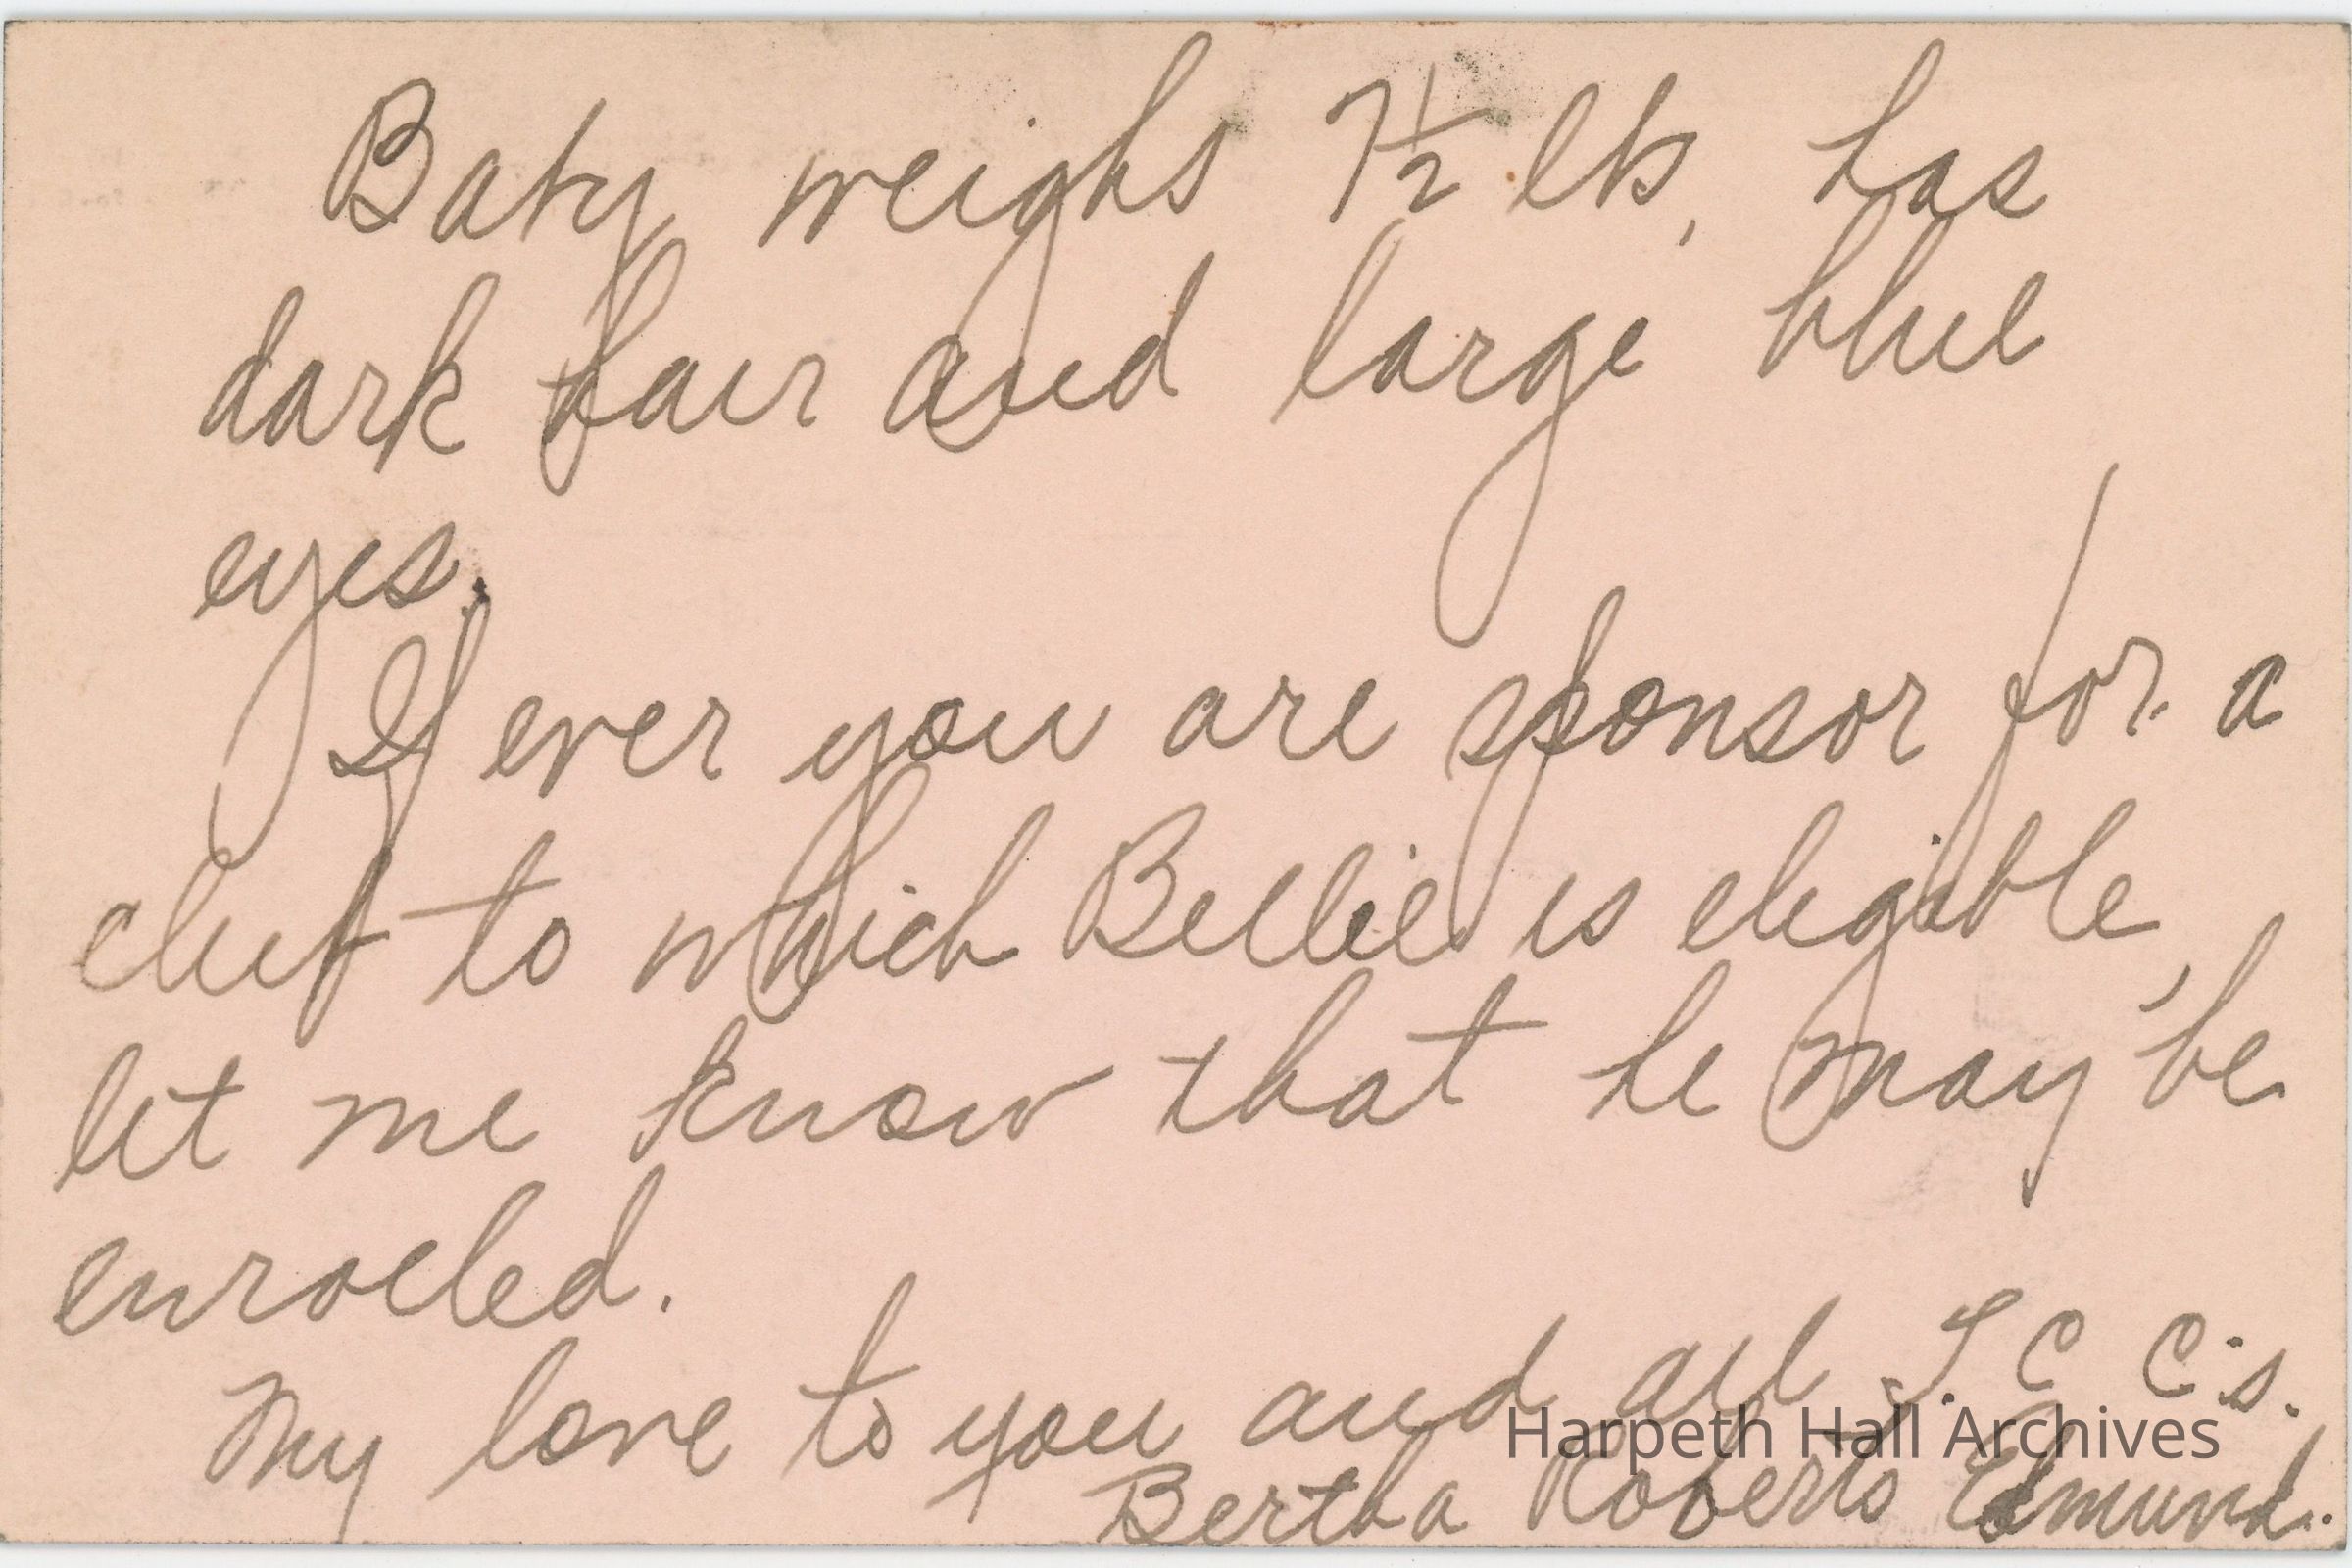 Baby weighs 7½ lbs, has
dark hair and large blue
eyes.
If ever you are sponsor for a
club to which Billie is eligible,
let me know that he may be
enrolled.
My love to you and all T. C C's.
Harpeth Hall Archives
Bertha Roberts Edmund.